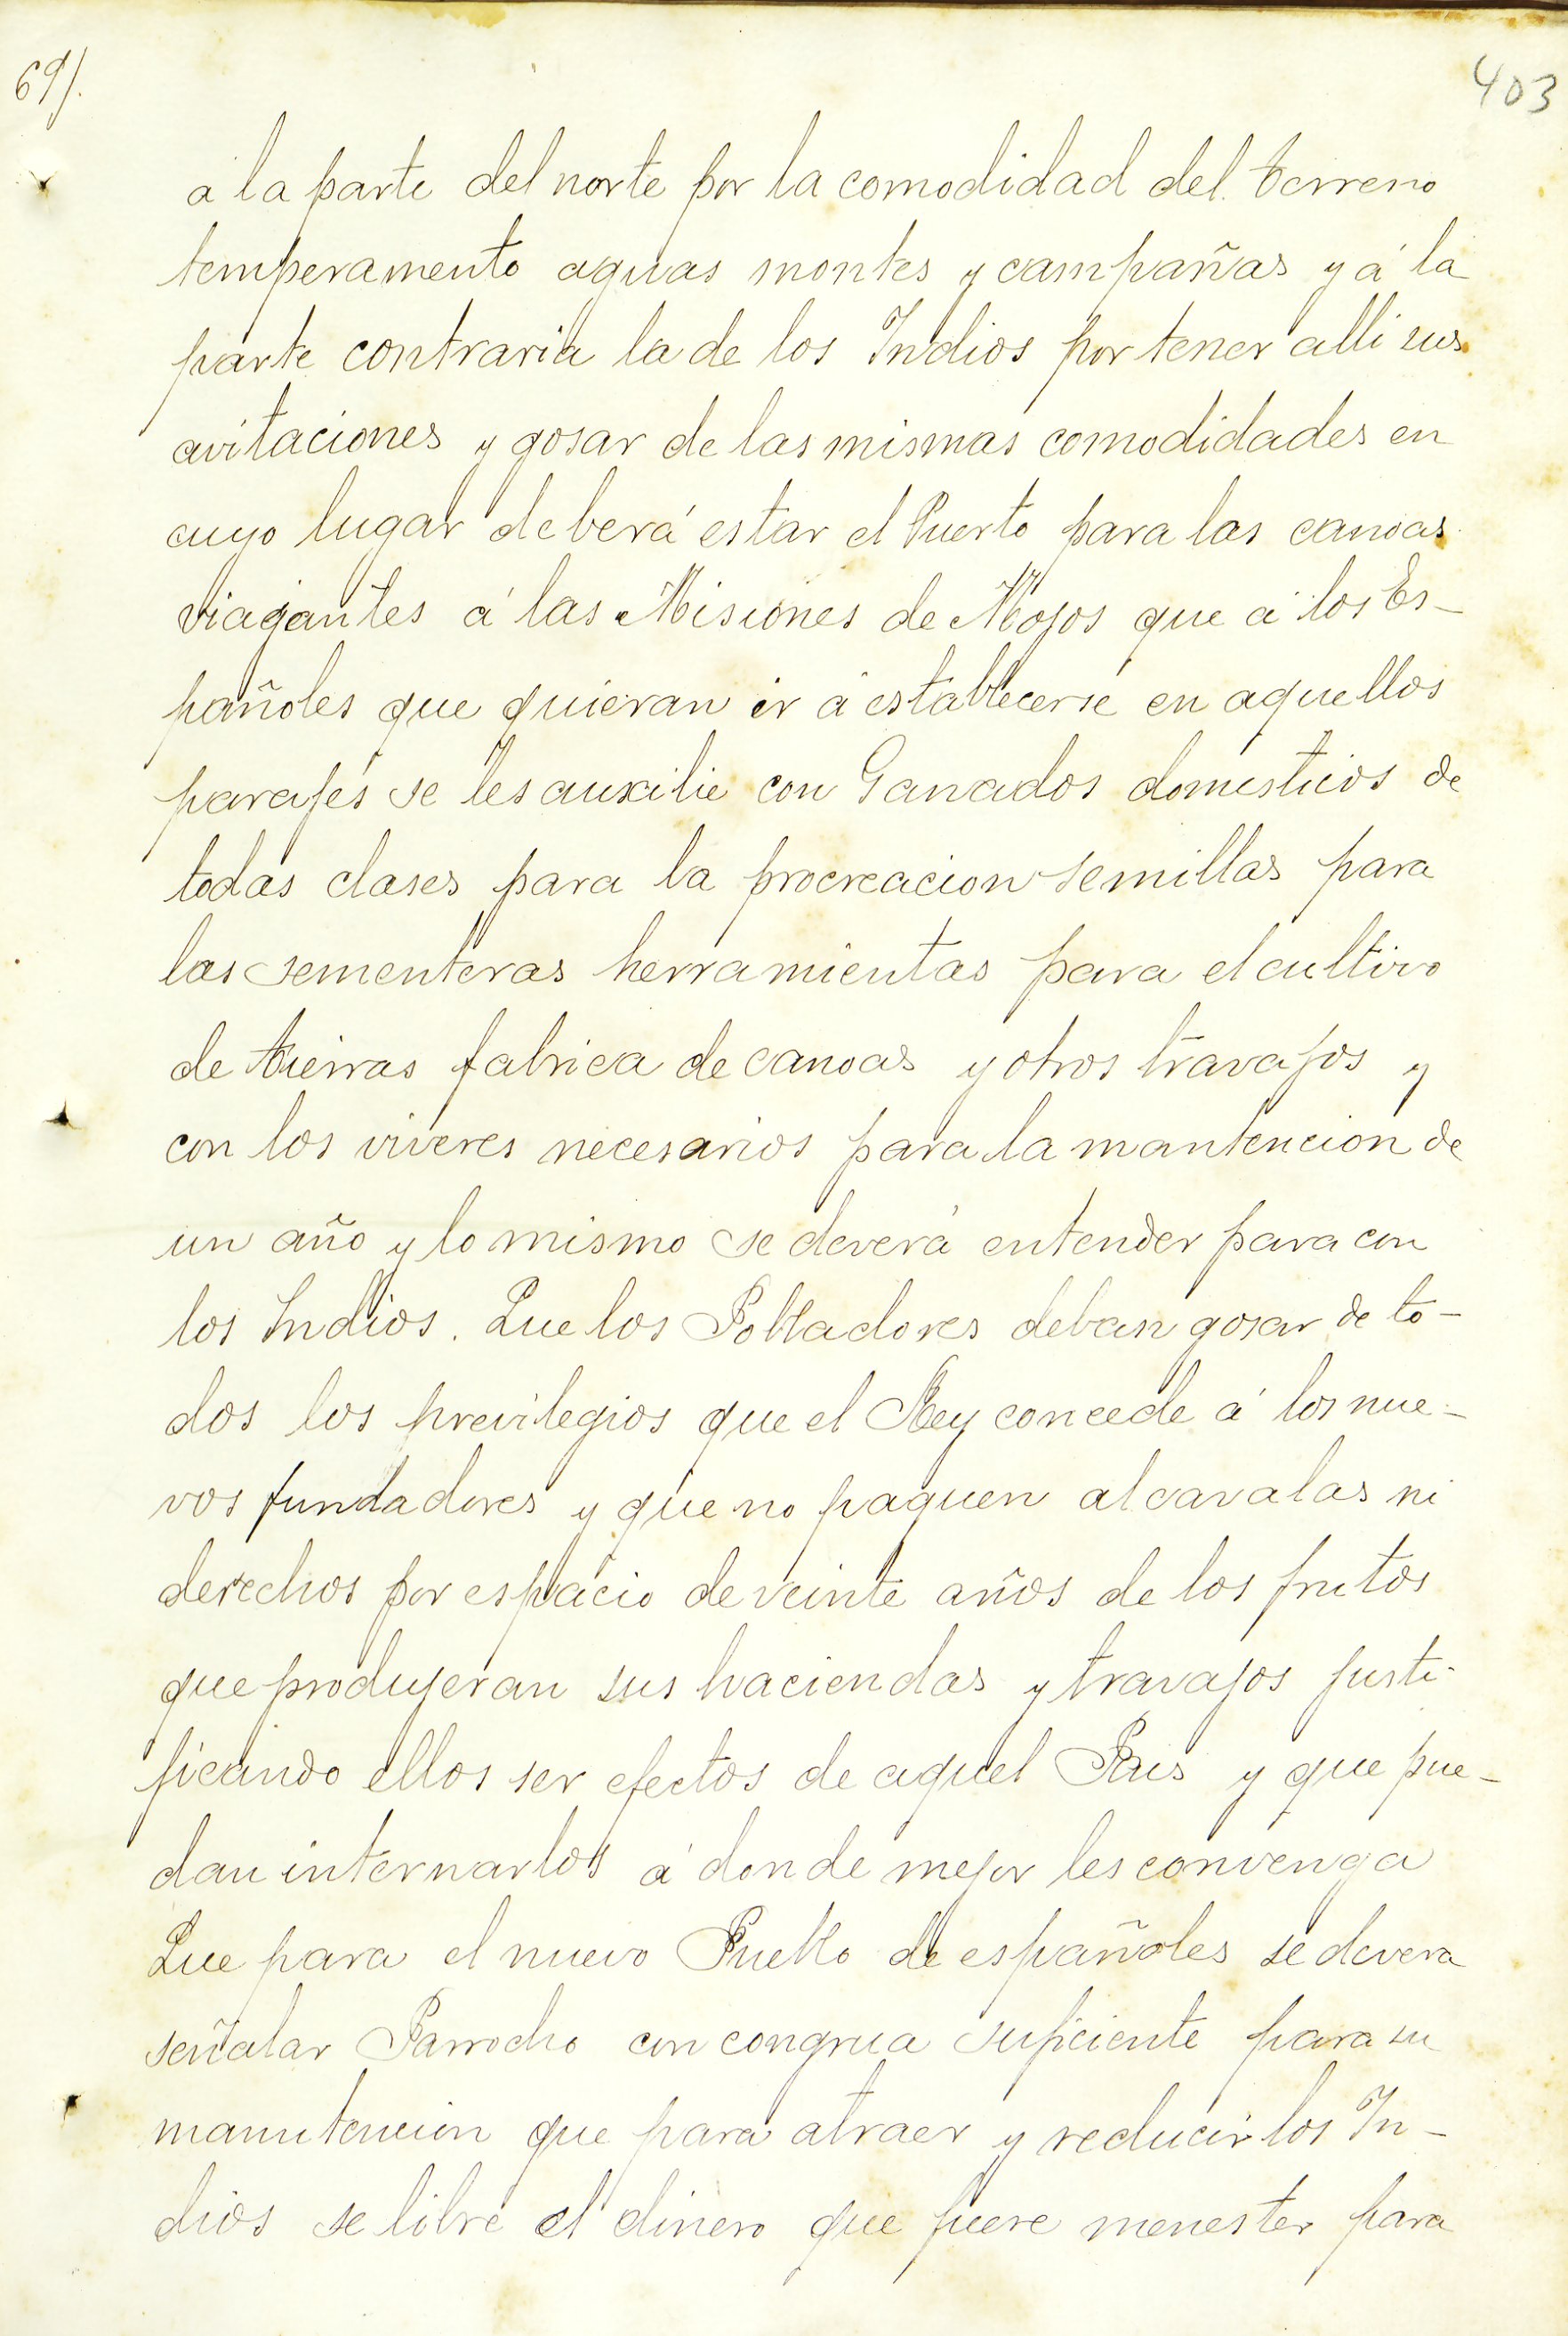 69/.
403
á la parte del norte por la comodidad del terreno
temperamento aguas montes y campañas y á la
parte contraria la de los Indios por tener alli sus
avitaciones y gosar de las mismas comodidades en
cuyo lugar deberá estar el Puerto para las canoas
viagantes á las Misiones de Mojos que á los Es-
pañoles que quieran ir á establecerse en aquellos
parajes se les auxilie con Ganados domesticos de
todas clases para la procreacion semillas para
las sementeras herramientas para el cultivo
de tierras fabrica de canoas y otros travajos y
con los viveres necesarios para la mantencion de
un año y lo mismo se deverá entender para con
los Indios. Que los Pobladores deban gosar de to-
dos los previlegios que el Rey concede á los nue-
vos fundadores y que no paguen alcavalas ni
derechos por espacio de veinte años de los frutos
que produjeran sus haciendas y travajos justi-
ficando ellos ser efectos de aquel Pais y que pue-
dan internarlos á donde mejor les convenga
Que para el nuevo Pueblo de españoles se devera
señalar Parrocho con congrua suficiente para su
manutencion que para atraer y reducir los In-
dios se libre el dinero que fuere menester para